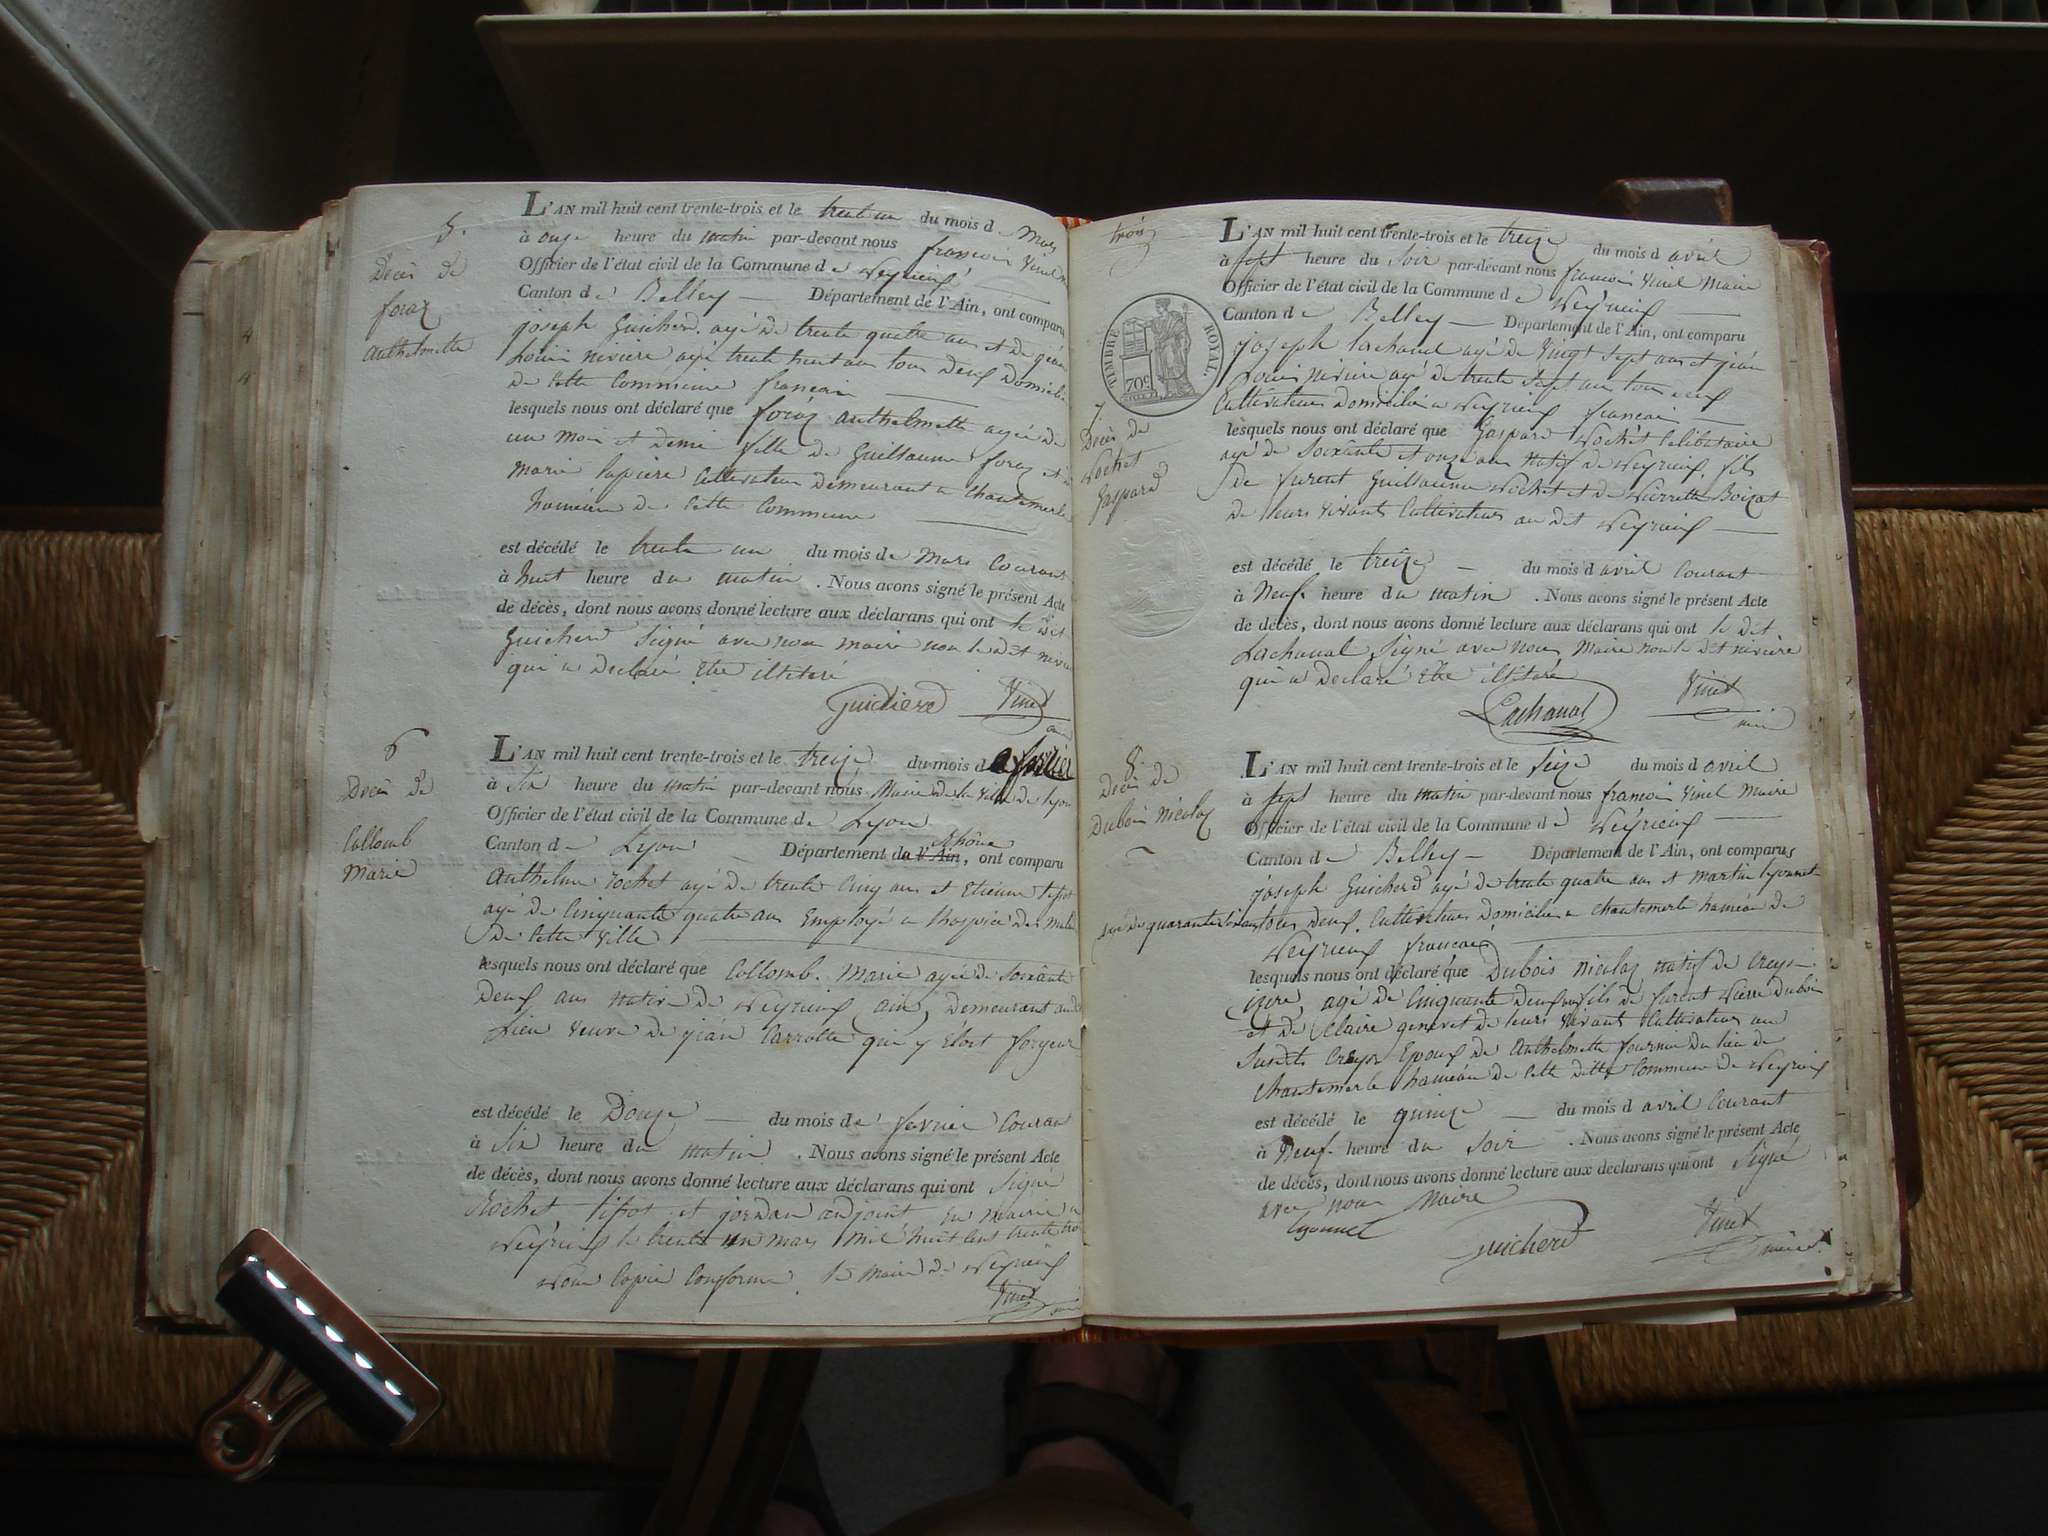 5.
Décès de
foraz
anthelmette
L'AN mil huit cent trente-trois et le trente un du mois de Mars
à onze heure du matin par-devant nous francois Vinet
Officier de l'état civil de la Commune de Peyrieux
Canton de Belley Département de l'Ain, ont comparu
joseph Guicherd agé de trente quatre ans et de
Louis riviere agé trente huit ans tous deux
de cette Commune francais
lesquels nous ont déclaré que foraz anthelmette agée de
un mois et demi fille de Guillaume foraz et
marie Cultivateurs demeurant a Chantemerle
hameau de Cette Commune
est décédé le trente un du mois de Mars Courant
à huit heure du matin. Nous avons signé le présent Acte
de décès, dont nous avons donné lecture aux déclarans qui ont le dit
Guicherd Signé avec nous maire non le dit
qui a Declaré Etre illitéré
Guicherd Vinet
6
Décès de
Collomb
Marie
L'AN mil huit cent trente-trois et le treize du mois de fevrier
à Six heure du matin par-devant nous Maire de la Ville de lyon
Officier de l'état civil de la Commune de Lyon
Rhône
Canton de Lyon Département de l'Ain, ont comparu
Anthelme rochet agé de trente Cinq ans et Etienne tifrot
agé de Cinquante quatre ans Employé a
De Cette Ville
lesquels nous ont déclaré que Collomb Marie agée de Soixante
Deux ans native de Peyrieux ain, Demeurant
Lieu Veuve de jéan Carrotte qui y Etoit forgeur
est décédé le Douze du mois de fevrier Courant
à Six heure du matin. Nous avons signé le présent Acte
de décès, dont nous avons donné lecture aux déclarans qui ont Signé
Rochet tifrot et jordan adjoint En Mairie a
Peyrieux le trente un mars mil huit Cent trente trois
Pour Copie Conforme le Maire de Peyrieux
Vinet
trois
TIMBRE ROYAL.
70c
7
Décès de
Pochet
Gaspard
L'AN mil huit cent trente-trois et le treize du mois d avril
à sept heure du Soir par-devant nous francois Vinet Maire
Officier de l'état civil de la Commune de Peyrieux
Canton de Belley Département de l'Ain, ont comparu
joseph lachaval agé de Vingt Sept ans et jéan
Louis riviere agé de trente Sept ans tous deux
Cultivateurs Domiciliés a Peyrieux francais
lesquels nous ont déclaré que Gaspard Pochet Celibetaire
agé de Soixante et onze ans natif de Peyrieux fils
De furent Guillaume Pochet et de Pierrette Boizat
De leurs vivants Cultivateurs au dit Peyrieux
est décédé le treize du mois d avril Courant
à Neuf heure du matin. Nous avons signé le présent Acte
de décès, dont nous avons donné lecture aux déclarans qui ont le dit
Lachaval Signé avec nous Maire non le dit riviere
qui a Declaré Etre illitéré
Lachaval Vinet
8.
Décès de
Dubois Nicolas
L'AN mil huit cent trente-trois et le Seize du mois d avril
à Sept heure du matin par-devant nous francois Vinet Maire
Officier de l'état civil de la Commune de Peyrieux
Canton de Belley Département de l'Ain, ont comparus
joseph Guicherd agé de trente quatre ans et martin lyonnet
agé de quarante Six ans tous deux Cultivateurs Domiciliés a Chantemerle hameau de
Peyrieux francais
lesquels nous ont déclaré que Dubois nicolas natif de
agé de Cinquante deux ans fils de furent Pierre dubois
et de Claire genevet de leurs Vivant Cultivateurs au
Susdit Epoux de anthelmette fournier du lieu de
Chantemerle hameau de Cette ditte Commune de Peyrieux
est décédé le quinze du mois d avril Courant
à Neuf heure du Soir. Nous avons signé le présent Acte
de décès, dont nous avons donné lecture aux déclarans qui ont Signé
avec nous Maire
lyonnet Guicherd Vinet